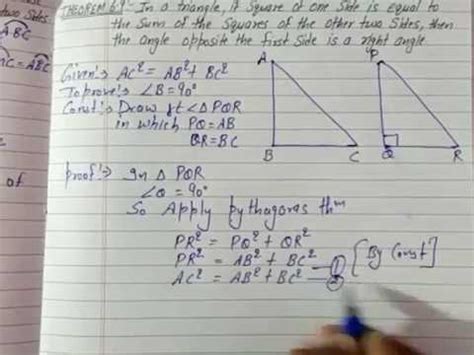 two Sides
ABC
= ABC
of
THEOREM 6.9:- In a triangle, if square of one side is equal to
the Sum of the Squares of the other two Sides, then
the angle opposite the first Side is a right angle
Given:→ AC² = AB² + BC²
To prove:→ ∠B = 90°
Const:→ Draw rt ∠ Δ PQR
in which PQ = AB
QR = BC
A
B
C
P
Q
R
proof:→ In Δ PQR
∠Q = 90°
So Apply pythagoras thm
PR² = PQ² + QR²
PR² = AB² + BC² — ① [By Const]
AC² = AB² + BC² — ②